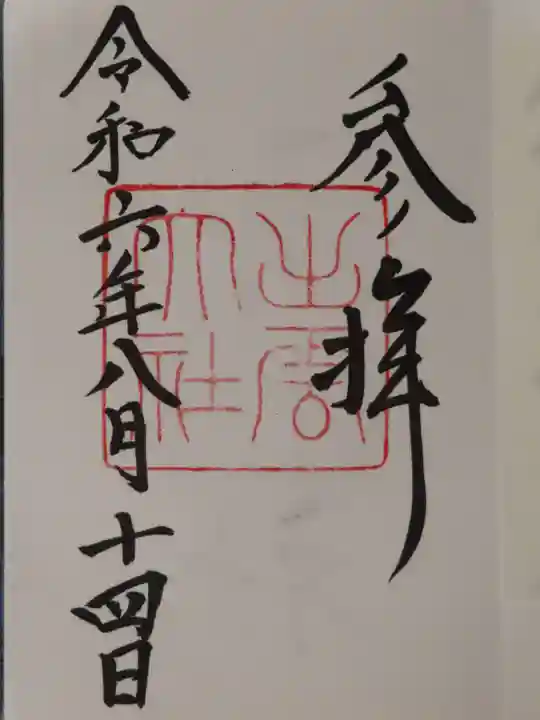 参拝
出雲大社
令和六年八月十四日